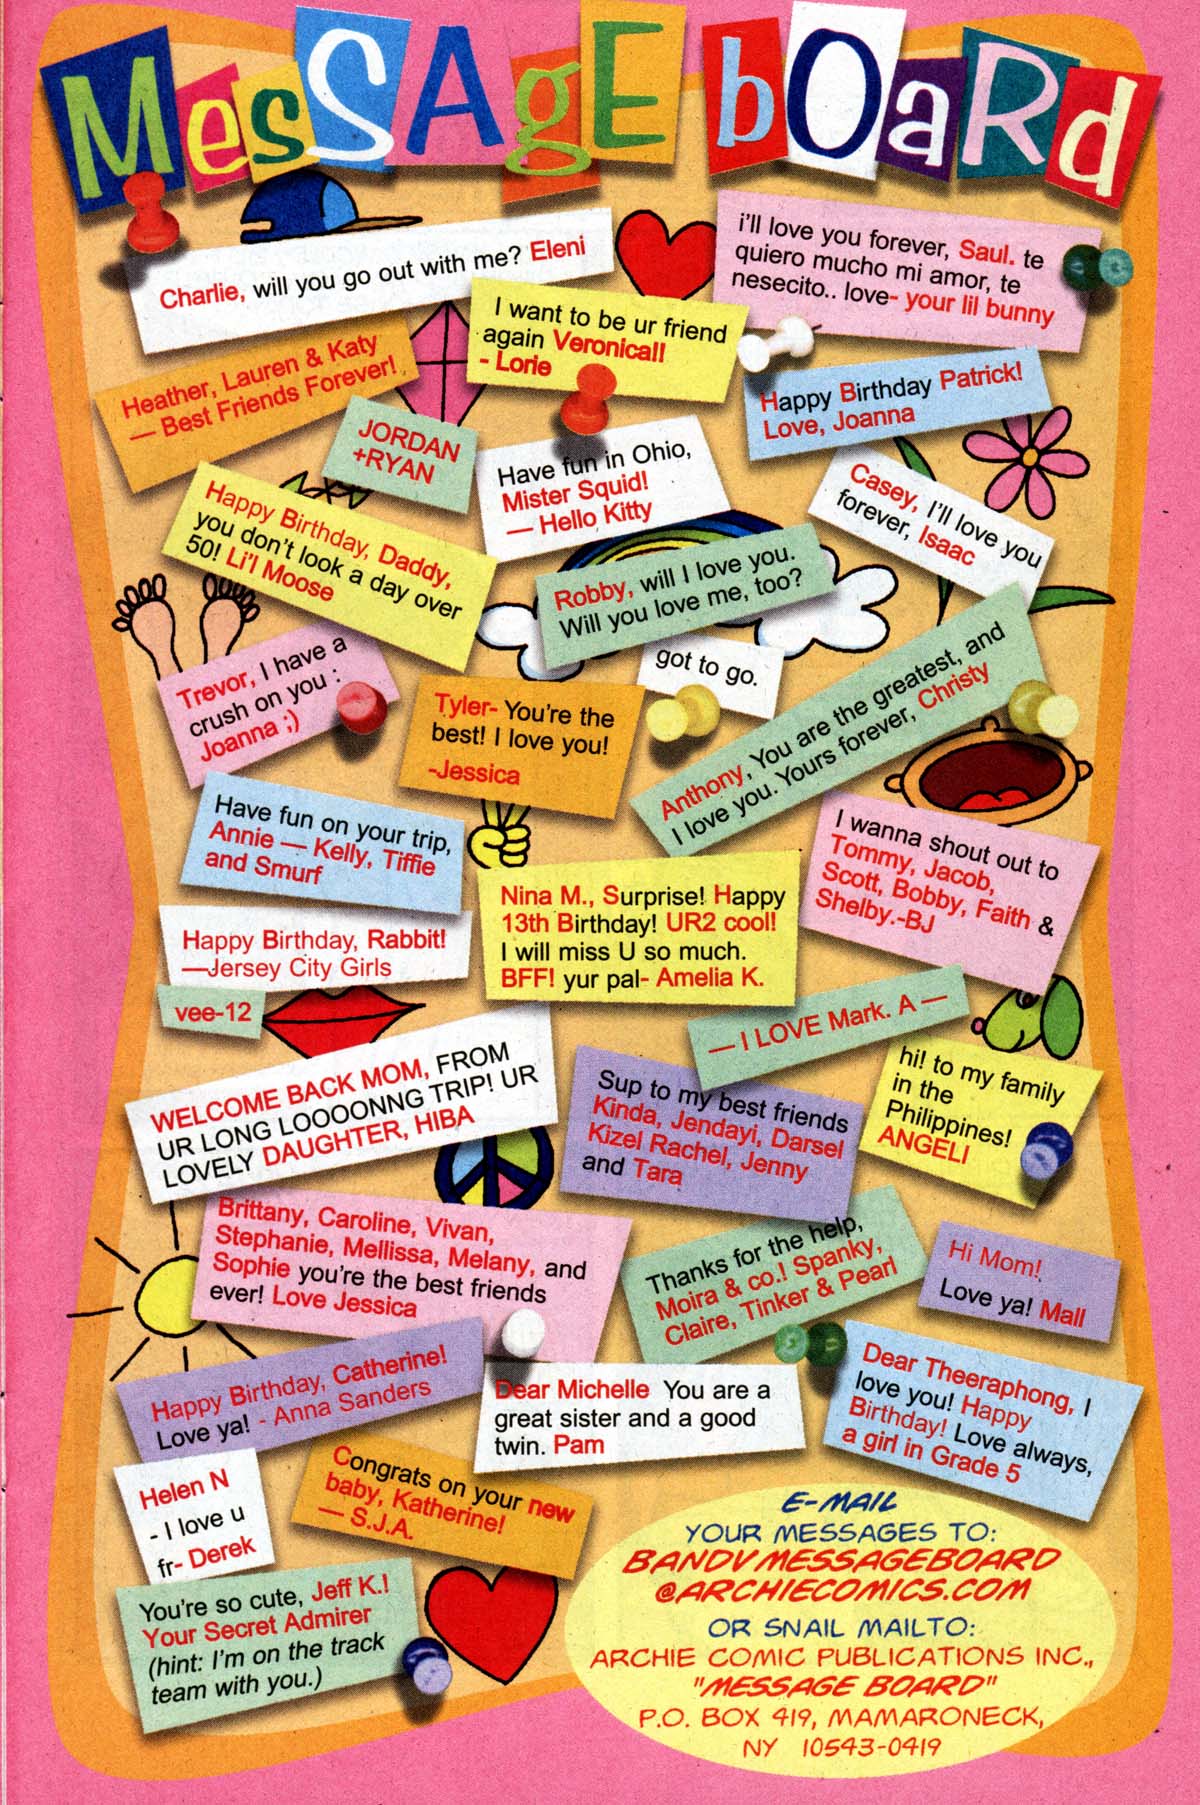 MesSAgE bOaRd
Charlie, will you go out with me? Eleni
i'll love you forever, Saul. te
quiero mucho mi amor, te
nesecito.. love- your lil bunny
I want to be ur friend
again Veronica!!
- Lorie
Heather, Lauren & Katy
— Best Friends Forever!
Happy Birthday Patrick!
Love, Joanna
JORDAN
+RYAN
Have fun in Ohio,
Mister Squid!
— Hello Kitty
Casey, I'll love you
forever, Isaac
Happy Birthday, Daddy,
you don't look a day over
50! Li'l Moose
Robby, will I love you.
Will you love me, too?
got to go.
Trevor, I have a
crush on you :
Joanna ;)
Tyler- You're the
best! I love you!
-Jessica
Anthony, You are the greatest, and
I love you. Yours forever, Christy
Have fun on your trip,
Annie — Kelly, Tiffie
and Smurf
I wanna shout out to
Tommy, Jacob,
Scott, Bobby, Faith &
Shelby.-BJ
Nina M., Surprise! Happy
13th Birthday! UR2 cool!
I will miss U so much.
BFF! yur pal- Amelia K.
Happy Birthday, Rabbit!
—Jersey City Girls
vee-12
— I LOVE Mark. A —
WELCOME BACK MOM, FROM
UR LONG LOOOONNG TRIP! UR
LOVELY DAUGHTER, HIBA
Sup to my best friends
Kinda, Jendayi, Darsel
Kizel Rachel, Jenny
and Tara
hi! to my family
in the
Philippines!
ANGELI
Brittany, Caroline, Vivan,
Stephanie, Mellissa, Melany, and
Sophie you're the best friends
ever! Love Jessica
Thanks for the help,
Moira & co.! Spanky,
Claire, Tinker & Pearl
Hi Mom!
Love ya! Mall
Happy Birthday, Catherine!
Love ya! - Anna Sanders
Dear Michelle You are a
great sister and a good
twin. Pam
Dear Theeraphong, I
love you! Happy
Birthday! Love always,
a girl in Grade 5
Helen N
- I love u
fr- Derek
Congrats on your new
baby, Katherine!
— S.J.A.
You're so cute, Jeff K.!
Your Secret Admirer
(hint: I'm on the track
team with you.)
E-MAIL
YOUR MESSAGES TO:
BANDVMESSAGEBOARD
@ARCHIECOMICS.COM
OR SNAIL MAIL TO:
ARCHIE COMIC PUBLICATIONS INC.,
"MESSAGE BOARD"
P.O. BOX 419, MAMARONECK,
NY 10543-0419